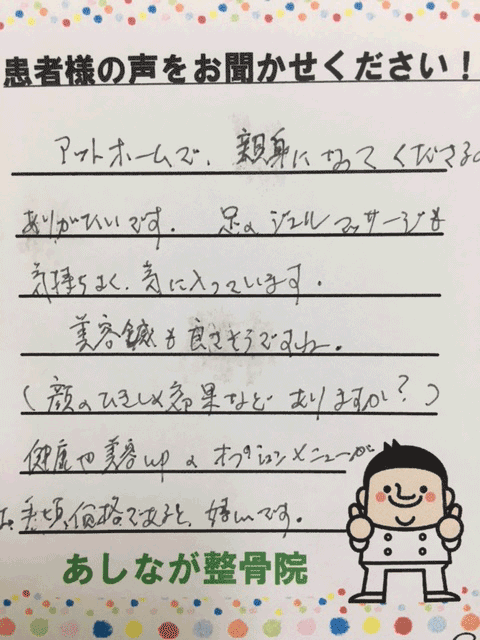 患者様の声をお聞かせください！
アットホームで、親身になってくださるの
ありがたいです。 足の ジェルマッサージも
気持ちよく、気に入っています。
美容鍼も良さそうですね。
(顔のひきしめ効果など ありますか?)
健康や美容upの オプションメニューが
お手頃価格であると、嬉しいです。
あしなが整骨院